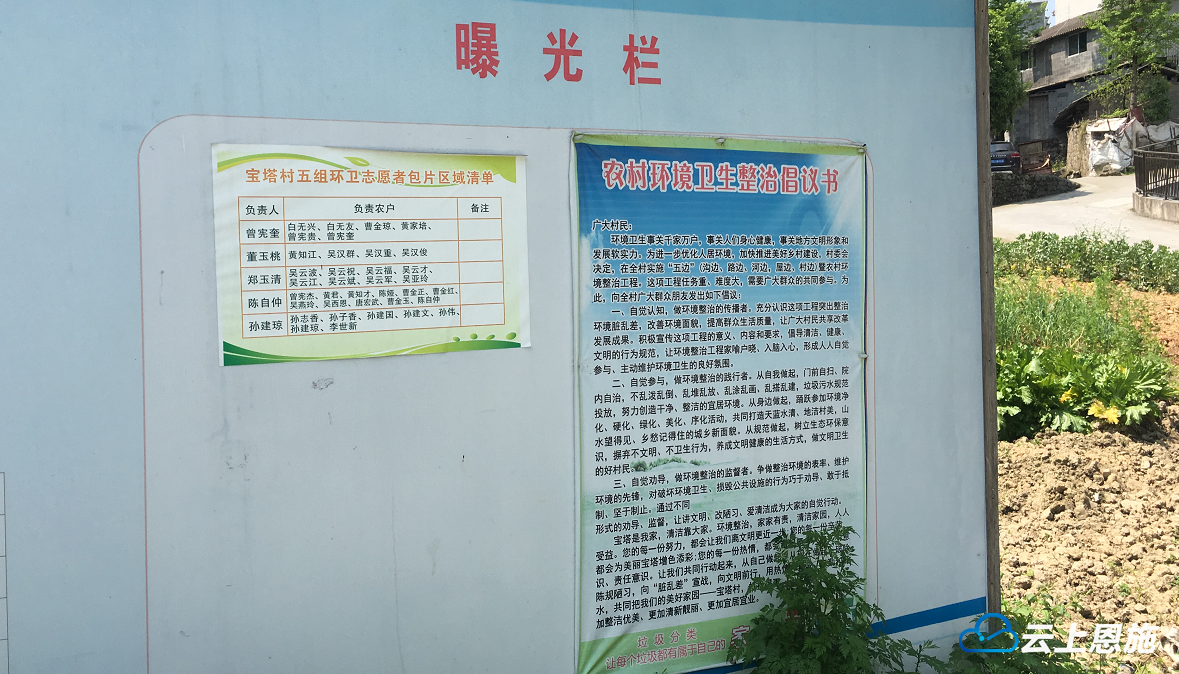 曝光栏
宝塔村五组环卫志愿者包片区域清单
负责人 负责农户 备注
曾宪奎 白无兴、白无友、曹金琼、黄家培、
曾宪贵、曾宪奎
董玉桃 黄知江、吴汉群、吴汉重、吴汉俊
郑玉清 吴云波、吴云祝、吴云福、吴云才、
吴云江、吴云斌、吴云军、吴亚玲
陈自仲 曾宪杰、黄君、黄知才、陈娅、曹金正、曹金红、
吴燕玲、吴西恩、唐宏武、曹金玉、陈自仲
孙建琼 孙志香、孙子香、孙建国、孙建文、孙伟、
孙建琼、李世新
农村环境卫生整治倡议书
广大村民：
环境卫生事关千家万户，事关人们身心健康，事关地方文明形象和
发展软实力。为进一步优化人居环境，加快推进美好乡村建设，村委会
决定，在全村实施“五边”（沟边、路边、河边、屋边、村边）暨农村环
境整治工程。这项工程任务重、难度大，需要广大群众的共同参与。为
此，向全村广大群众朋友发出如下倡议：
一、自觉认知，做环境整治的传播者。充分认识这项工程突出整治
环境脏乱差，改善环境面貌，提高群众生活质量，让广大村民共享改革
发展成果。积极宣传这项工程的意义、内容和要求，倡导清洁、健康、
文明的行为规范，让环境整治工程家喻户晓、入脑入心，形成人人自觉
参与、主动维护环境卫生的良好氛围。
二、自觉参与，做环境整治的践行者。从自我做起，门前自扫、院
内自治，不乱泼乱倒、乱堆乱放、乱涂乱画、乱搭乱建，垃圾污水规范
投放，努力创造干净、整洁的宜居环境。从身边做起，踊跃参加环境净
化、硬化、绿化、美化、序化活动，共同打造天蓝水清、地洁村美，山
水望得见、乡愁记得住的城乡新面貌。从规范做起，树立生态环保意
识，摒弃不文明、不卫生行为，养成文明健康的生活方式，做文明卫生
的好村民。
三、自觉劝导，做环境整治的监督者。争做整治环境的表率、维护
环境的先锋，对破坏环境卫生、损毁公共设施的行为巧于劝导、敢于抵
制、坚于制止，通过不同
形式的劝导、监督，让讲文明、改陋习、爱清洁成为大家的自觉行动。
宝塔是我家，清洁靠大家。环境整治，家家有责，清洁家园，人人
受益。您的每一份努力，都会让我们离文明更近一步；您的每一份
都会为美丽宝塔增色添彩；您的每一份热情，都会
识、责任意识。让我们共同行动起来，从自己做起，从
陈规陋习，向“脏乱差”宣战，向文明前行，用热情
水，共同把我们的美好家园——宝塔村，
加整洁优美、更加清新靓丽、更加宜居宜业。
垃圾分类
让每个垃圾都有属于自己的家
云上恩施